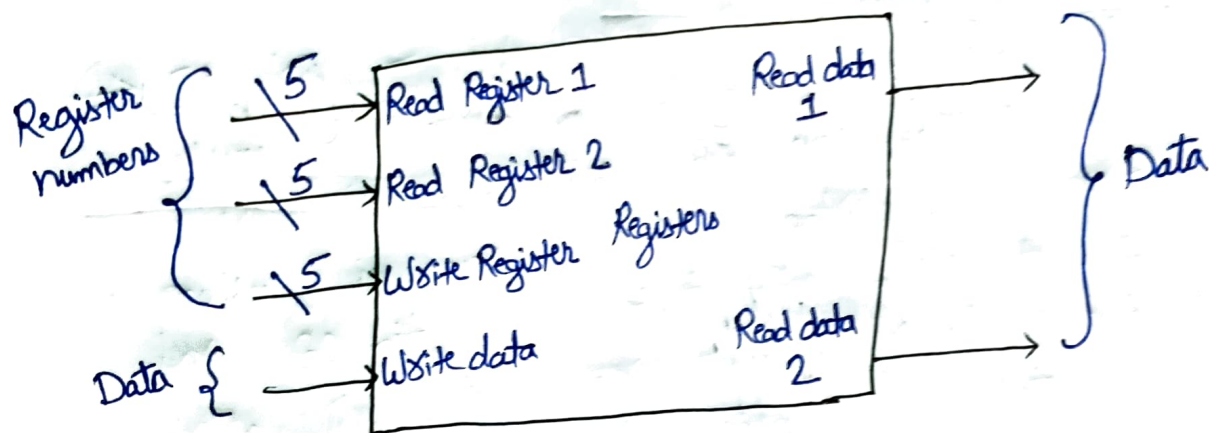 Register
numbers
5
Read Register 1
5
Read Register 2
5
Write Register
Registers
Data
Write data
Read data
1
Read data
2
Data